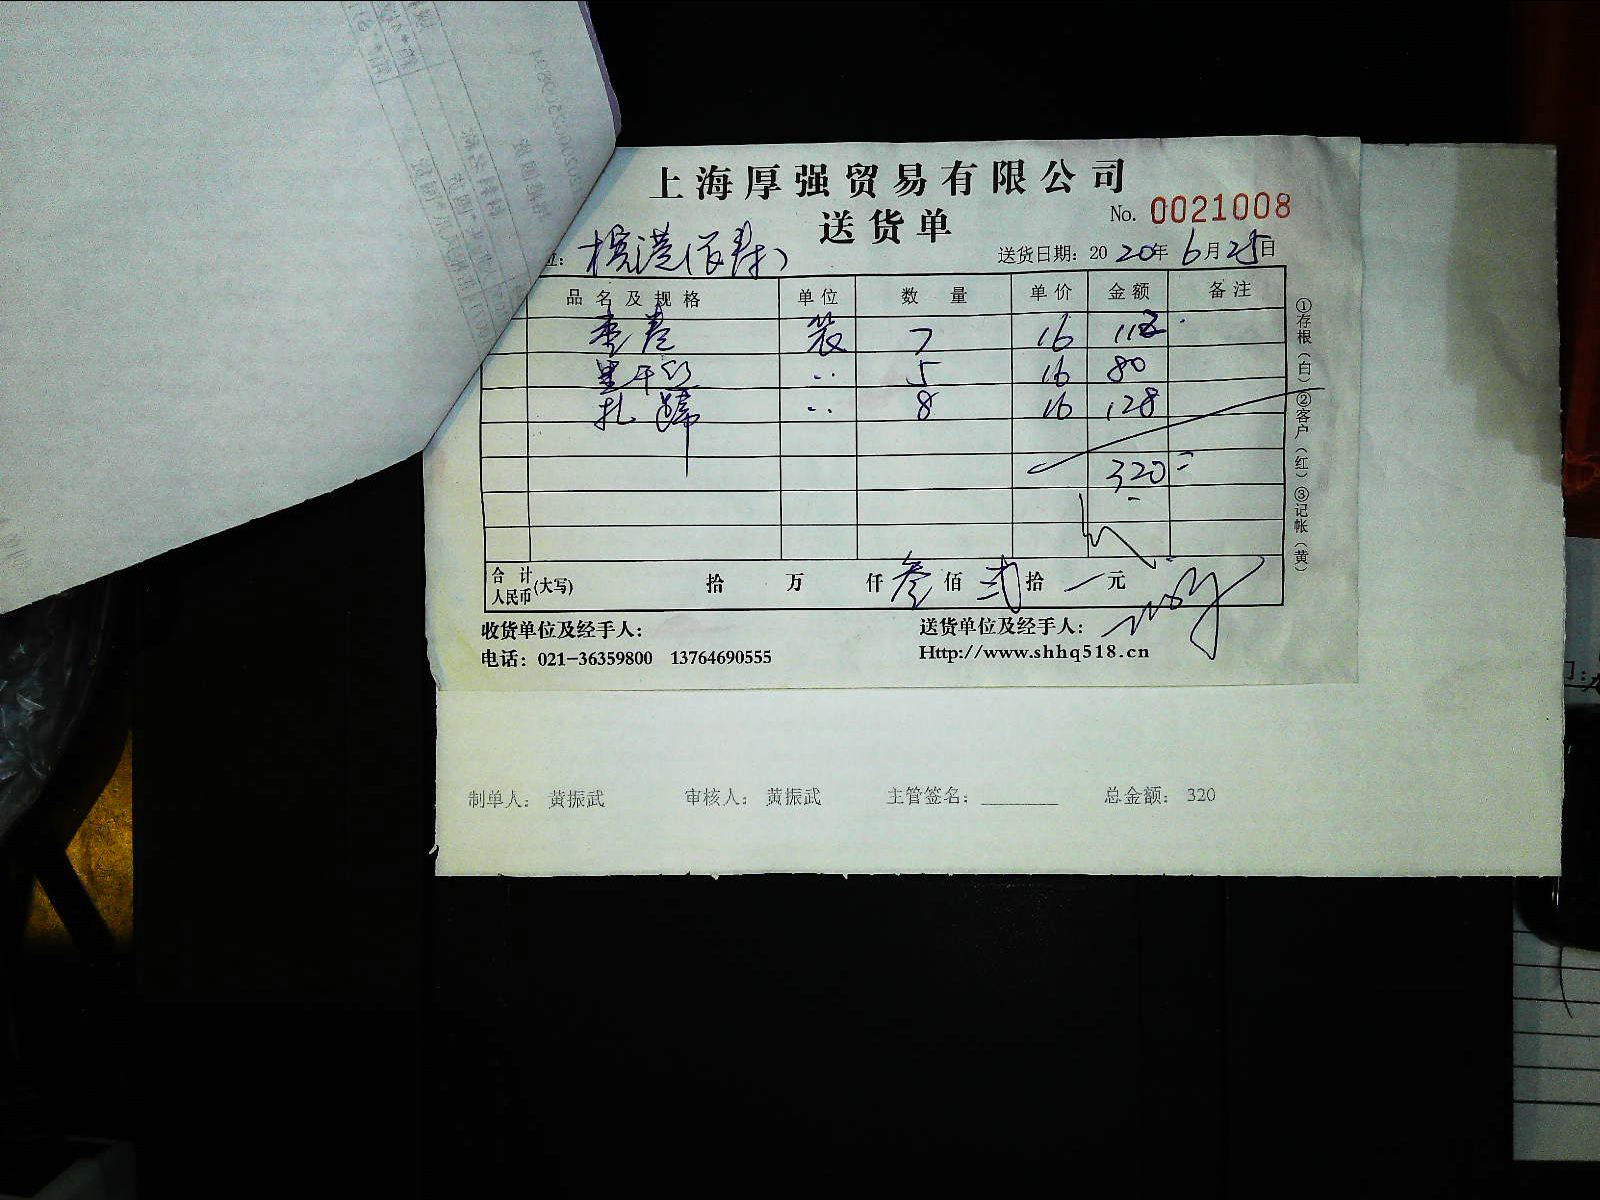 上海厚强贸易有限公司
送货单
No. 0021008
横港
送货日期: 2020年6月25日
品名及规格 单位 数量 单价 金额 备注
枣卷 袋 7 16 112
黑干丝 〃 5 16 80
扎蹄 〃 8 16 128
320
合计人民币(大写) 拾 万 仟 叁佰 贰拾 元
收货单位及经手人:
送货单位及经手人:
电话: 021-36359800 13764690555
Http://www.shhq518.cn
①存根(白)②客户(红)③记帐(黄)
制单人: 黄振武 审核人: 黄振武 主管签名: ________ 总金额: 320